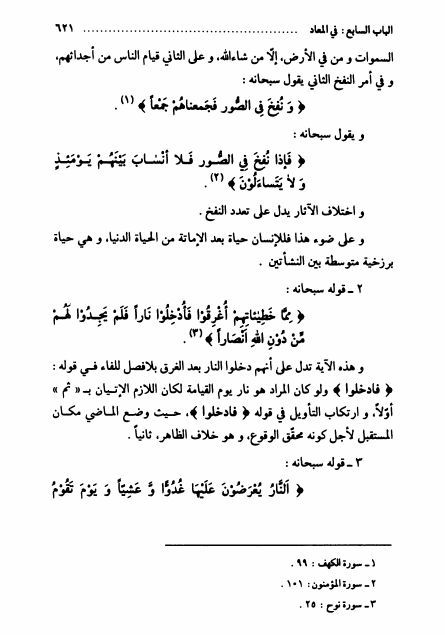 الباب السابع: في المعاد ................................................ ٦٢١
السموات و من في الأرض، إلّا من شاءالله، و على الثاني قيام الناس من أجداثهم،
و في أمر النفخ الثاني يقول سبحانه :
﴿ وَ نُفِخَ فِي الصُّور فَجَمعناهُمْ جَمْعاً ﴾ (١) .
و يقول سبحانه :
﴿ فَإذا نُفِخَ فِي الصُّـور فَـلا أنْسٰـابَ بَيْنَهُـمْ يَـوْمَئِـذٍ
وَ لاٰ يَتَساءَلُوْنَ ﴾ (٢) .
و اختلاف الآثار يدل على تعدد النفخ .
و على ضوء هذا فللإنسان حياة بعد الإماتة من الحياة الدنيا، و هي حياة
برزخية متوسطة بين النشأتين .
٢ ـ قوله سبحانه :
﴿ مِمّا خَطِيْئاتِهِمْ أُغْرِقُوْا فَأُدْخِلُوْا نَاراً فَلَمْ يَجِـدُوْا لَهُـمْ
مِّنْ دُوْنِ اللهِ أَنْصٰاراً ﴾ (٣) .
و هذه الآية تدل على أنهم دخلوا النار بعد الغرق بلافصل للفاء فـي قوله :
﴿ فادخلوا ﴾ ولو كان المراد هو نار يوم القيامة لكان اللازم الإتيـان بـ « ثم »
أوّلاً، و ارتكاب التأويل في قوله ﴿ فادخلوا ﴾، حـيث وضـع المـاضي مكـان
المستقبل لأجل كونه محقّق الوقوع، و هو خلاف الظاهر، ثانياً .
٣ ـ قوله سبحانه :
﴿ اَلنَّارُ يُعْرَضُوْنَ عَلَيْهَا غُدُوًّا وَّ عَشِيّاً وَ يَوْمَ تَقُوْمُ
١ ـ سورة الكهف : ٩٩ .
٢ ـ سورة المؤمنون : ١٠١ .
٣ ـ سورة نوح : ٢٥ .